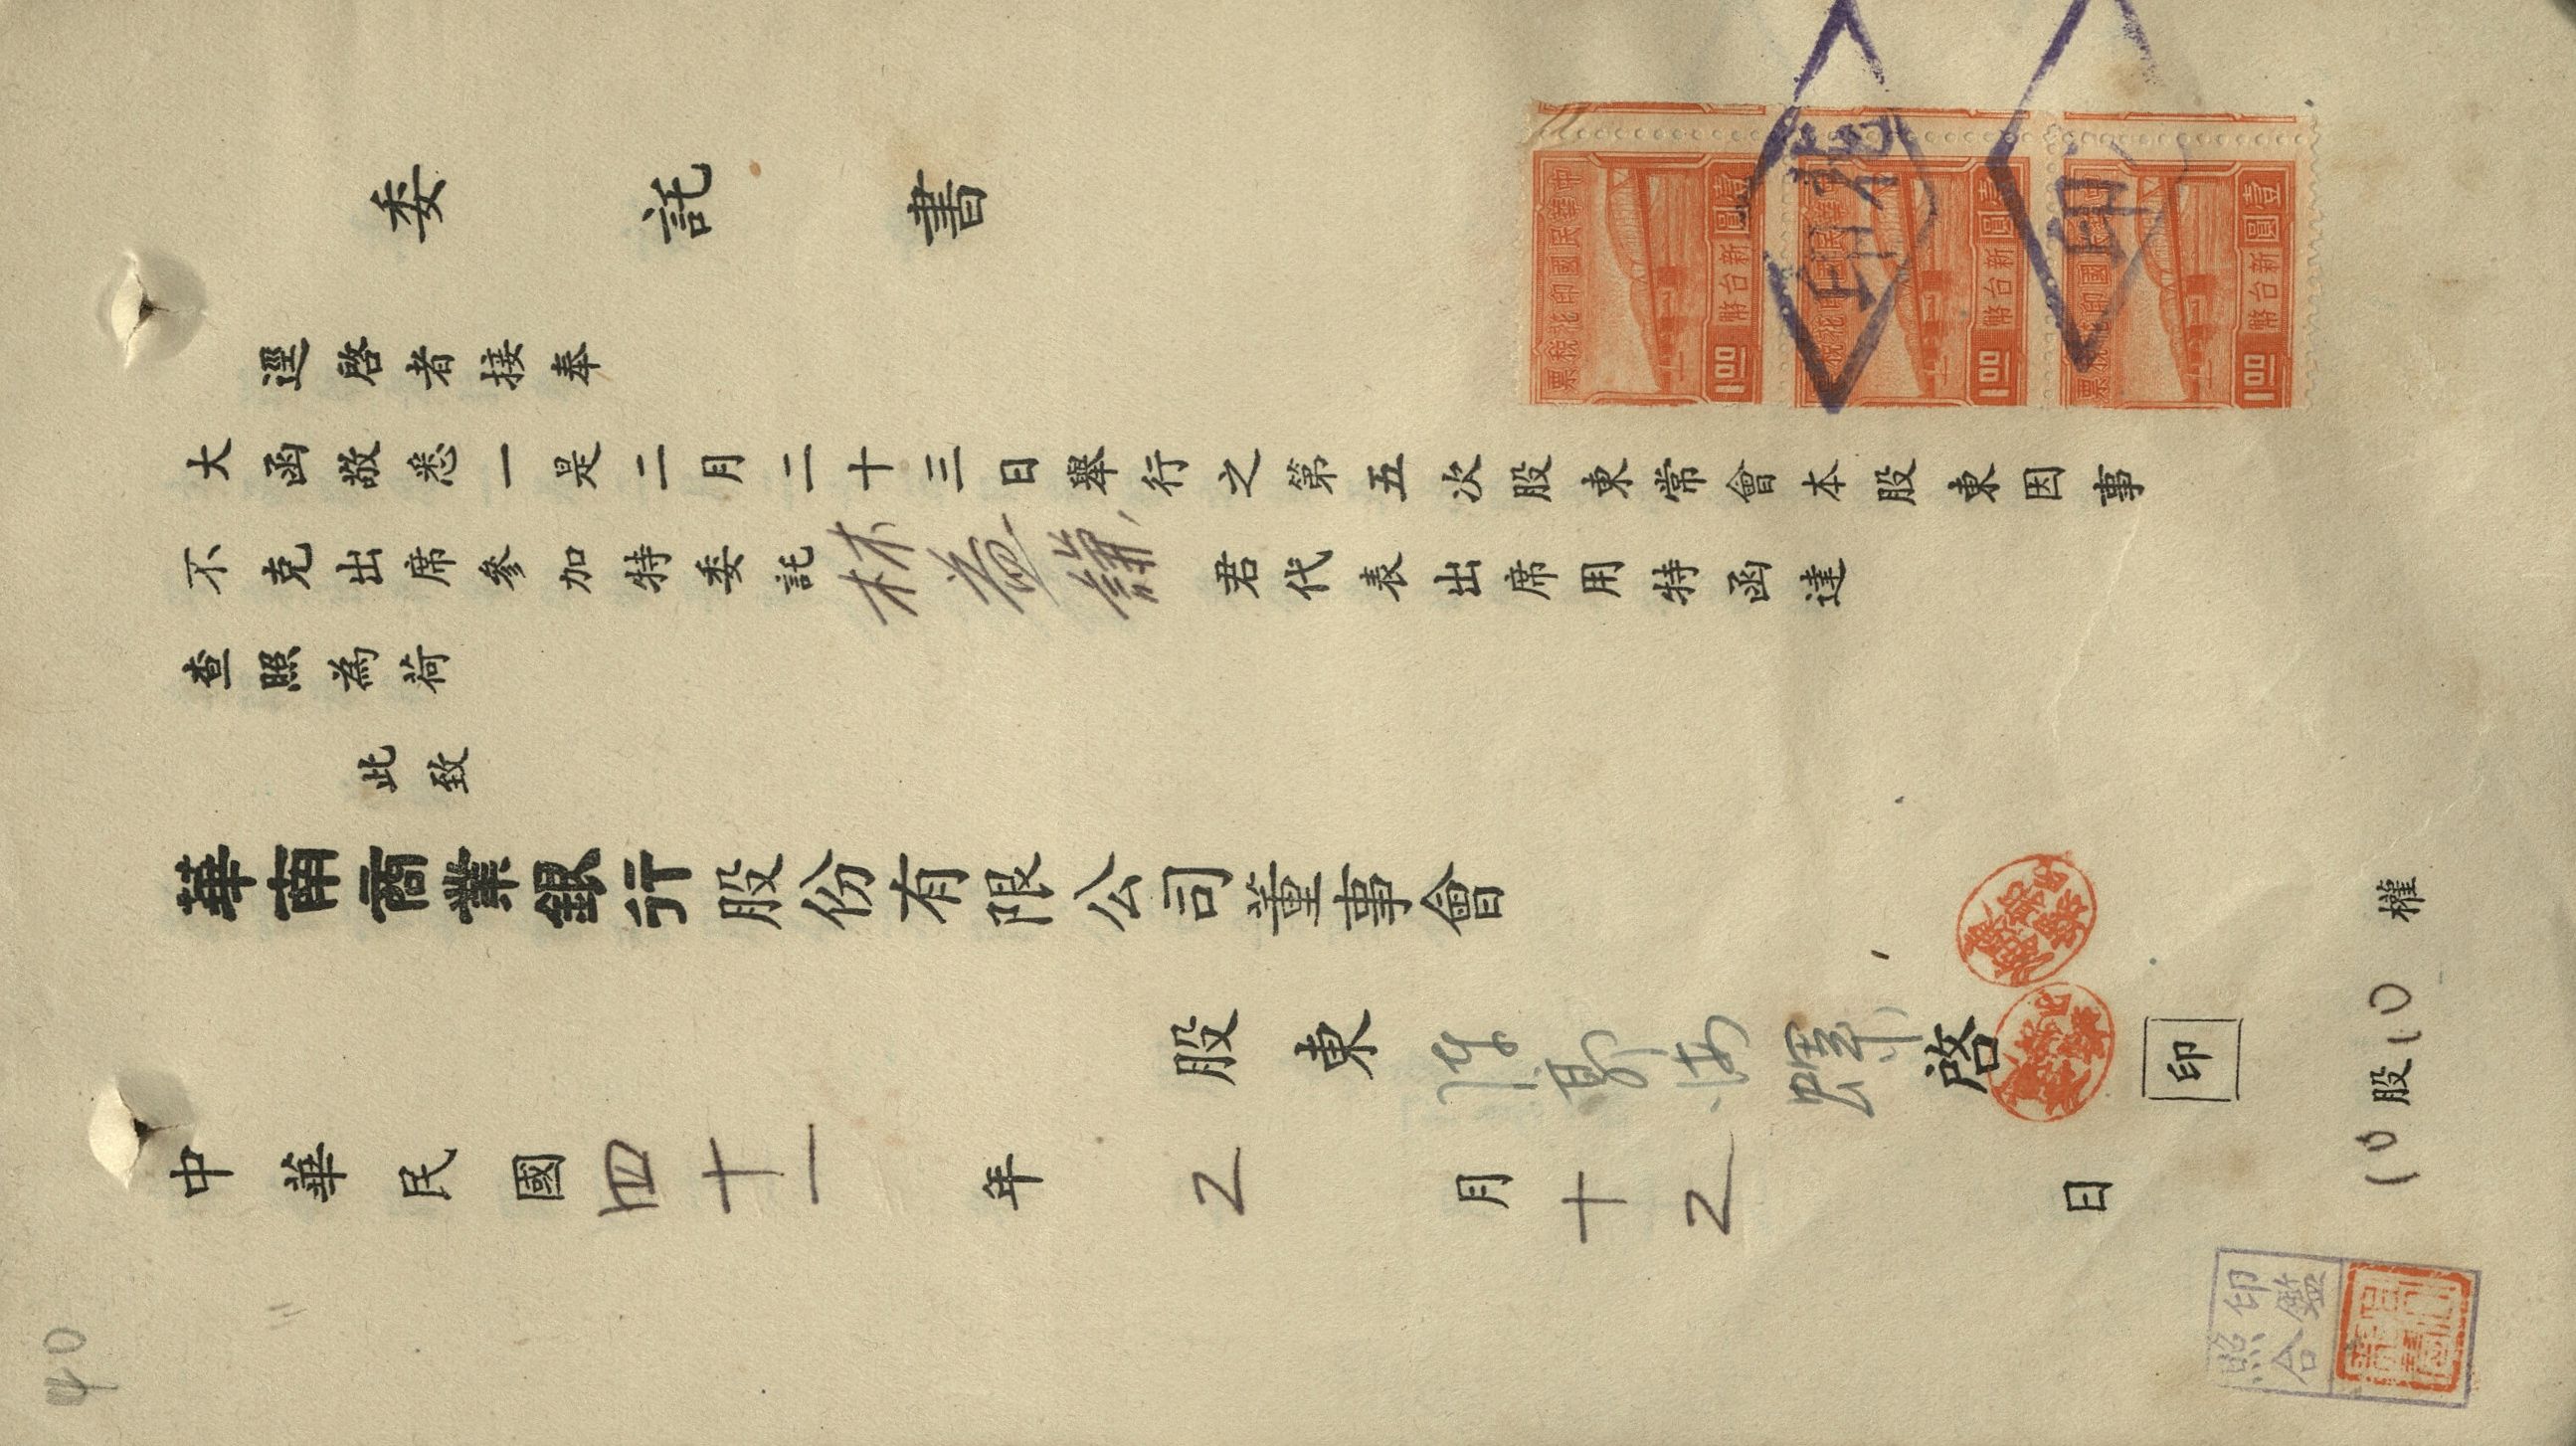 委託書
逕啓者接奉
大函敬悉一是二月二十三日舉行之第五次股東常會本股東因事
不克出席參加特委託林益謙君代表出席用特函達
查照為荷
此致
華南商業銀行股份有限公司董事會
股東 啓 印
中華民國四十一年2月十2日
10股10權
印鑑
照合
中華民國印花稅票
壹圓
新台幣
1.00
中華民國印花稅票
壹圓
新台幣
1.00
中華民國印花稅票
壹圓
新台幣
1.00
40